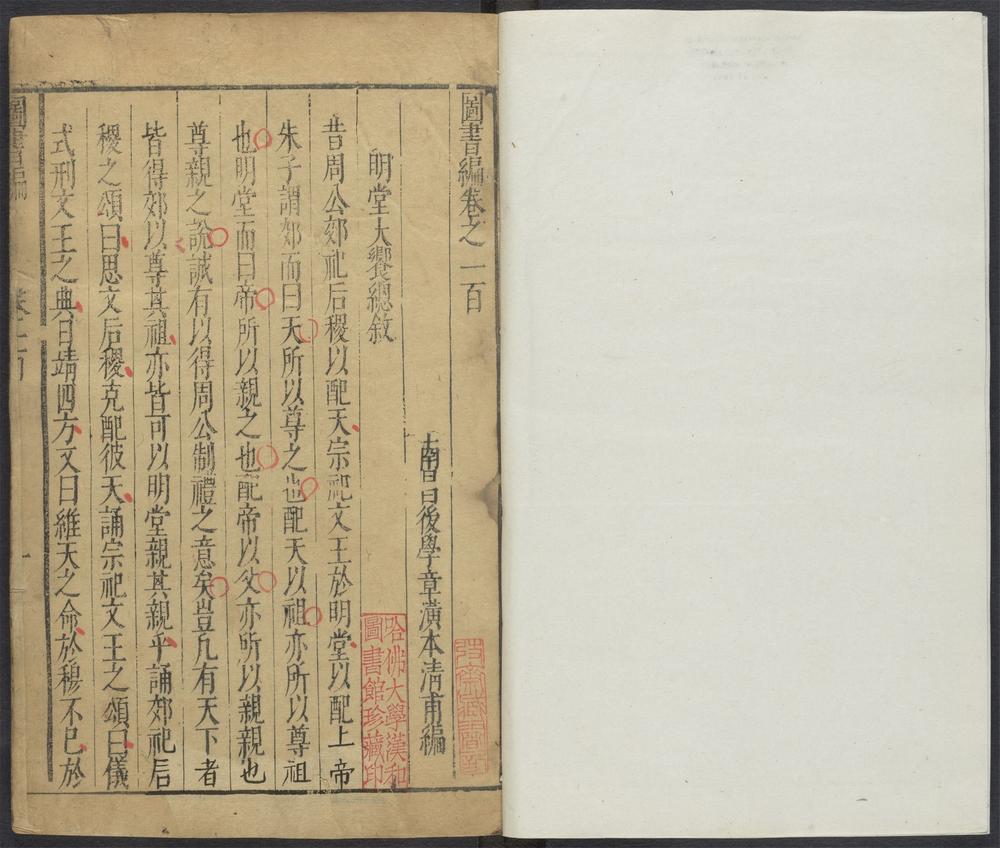 圖書編卷之一百
南昌後學章潢本清甫編
明堂大饗總敘
昔周公郊祀后稷以配天宗祀文王於明堂以配上帝
朱子謂郊而曰天所以尊之也配天以祖亦所以尊祖
也明堂而曰帝所以親之也配帝以父亦所以親親也
尊親之說誠有以得周公制禮之意矣豈凡有天下者
皆得郊以尊其祖亦皆可以明堂親其親乎誦郊祀后
稷之頌曰思文后稷克配彼天誦宗祀文王之頌曰儀
式刑文王之典日靖四方又曰維天之命於穆不已於
圖書編
卷之一百
一
哈佛大學漢和
圖書館珍藏印